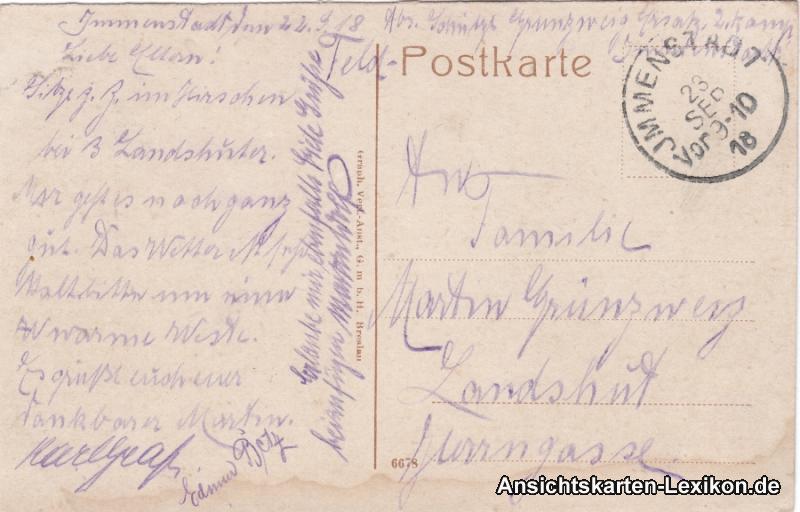 Immenstadt den 22.9.18
Abs. Schütze Grünzweig Ersatz 2. Komp.
Immenstadt
Liebe Eltern!
Feld-
Postkarte
Sitze z. Z. im Hirschen
bei 3 Landshuter.
Mir geht es noch ganz
gut. Das Wetter ist sehr
kalt bitte um eine
warme Weste.
Es grüßt euch euer
dankbarer Martin.
Karl Graf
Edmund Betz
Erlaube mir ebenfalls viele Grüße
beizufügen
Graph. Verl.-Anst., G. m. b. H. Breslau
6678
IMMENSTADT
23
SEP
Vor 9-10
18
An
Familie
Martin Grünzweig
Landshut
Herrngasse
Ansichtskarten-Lexikon.de